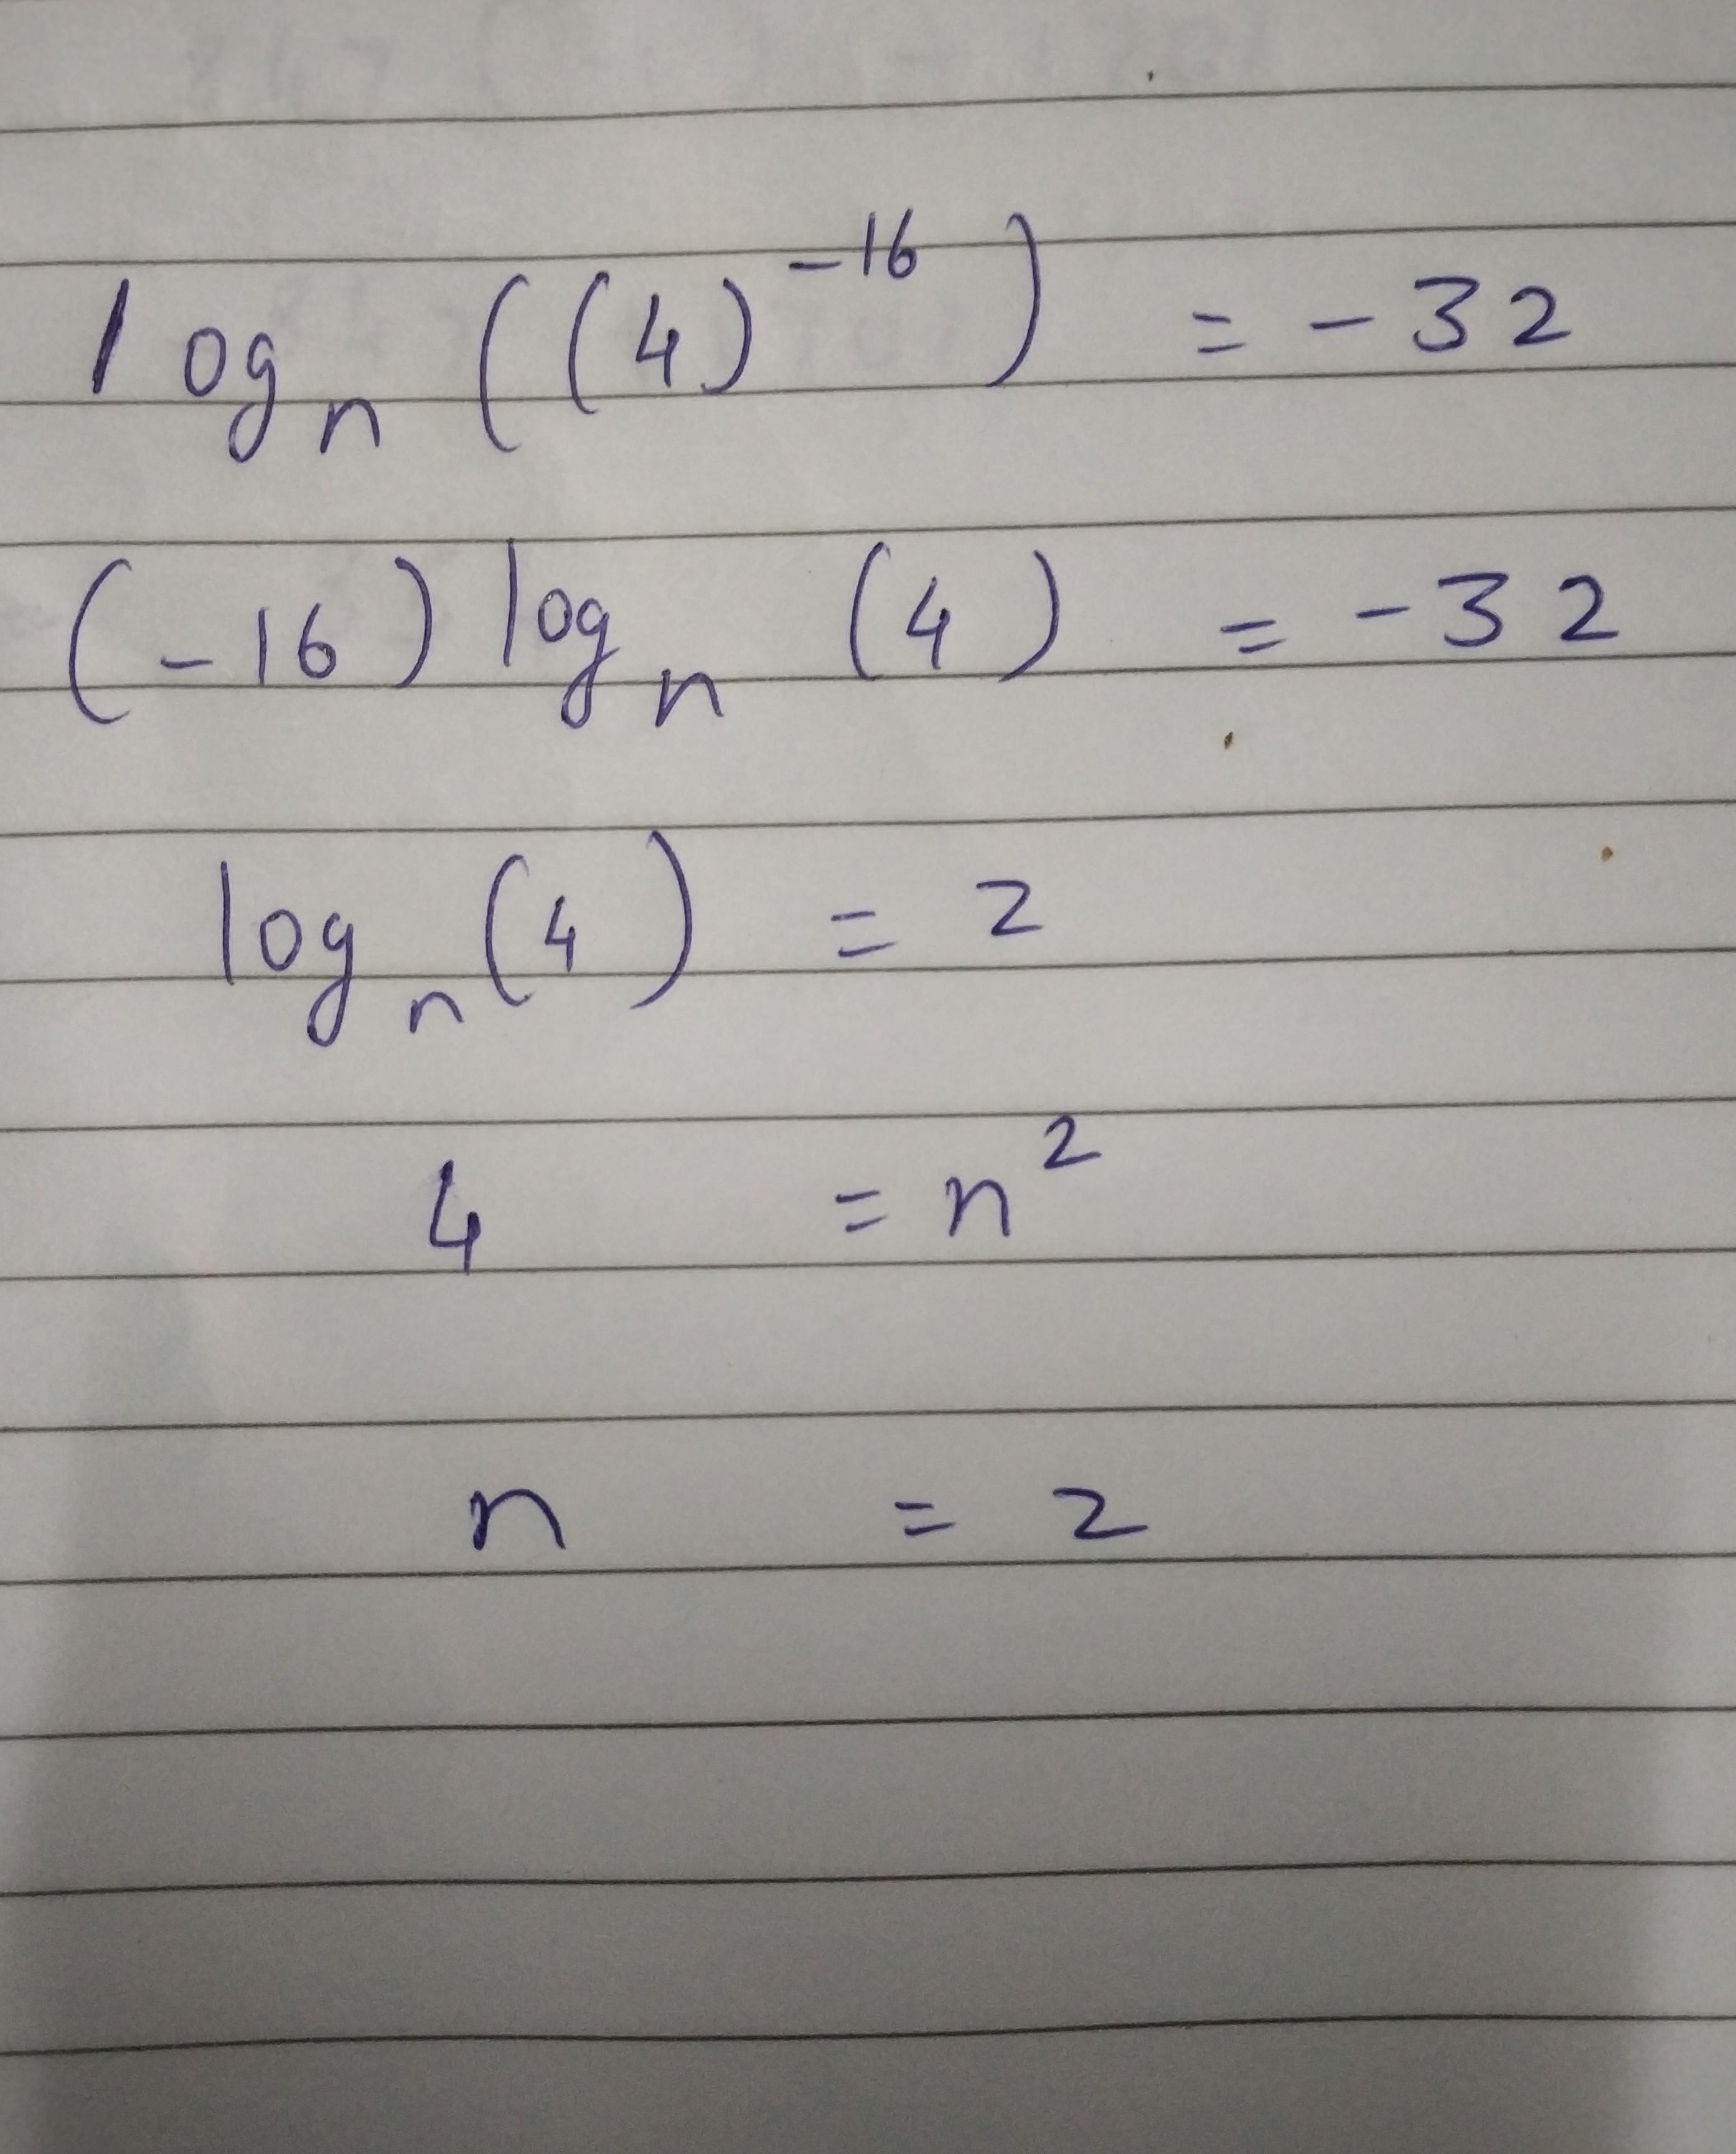 logₙ ((4)⁻¹⁶) = -32
(-16) logₙ (4) = -32
logₙ (4) = 2
4 = n²
n = 2